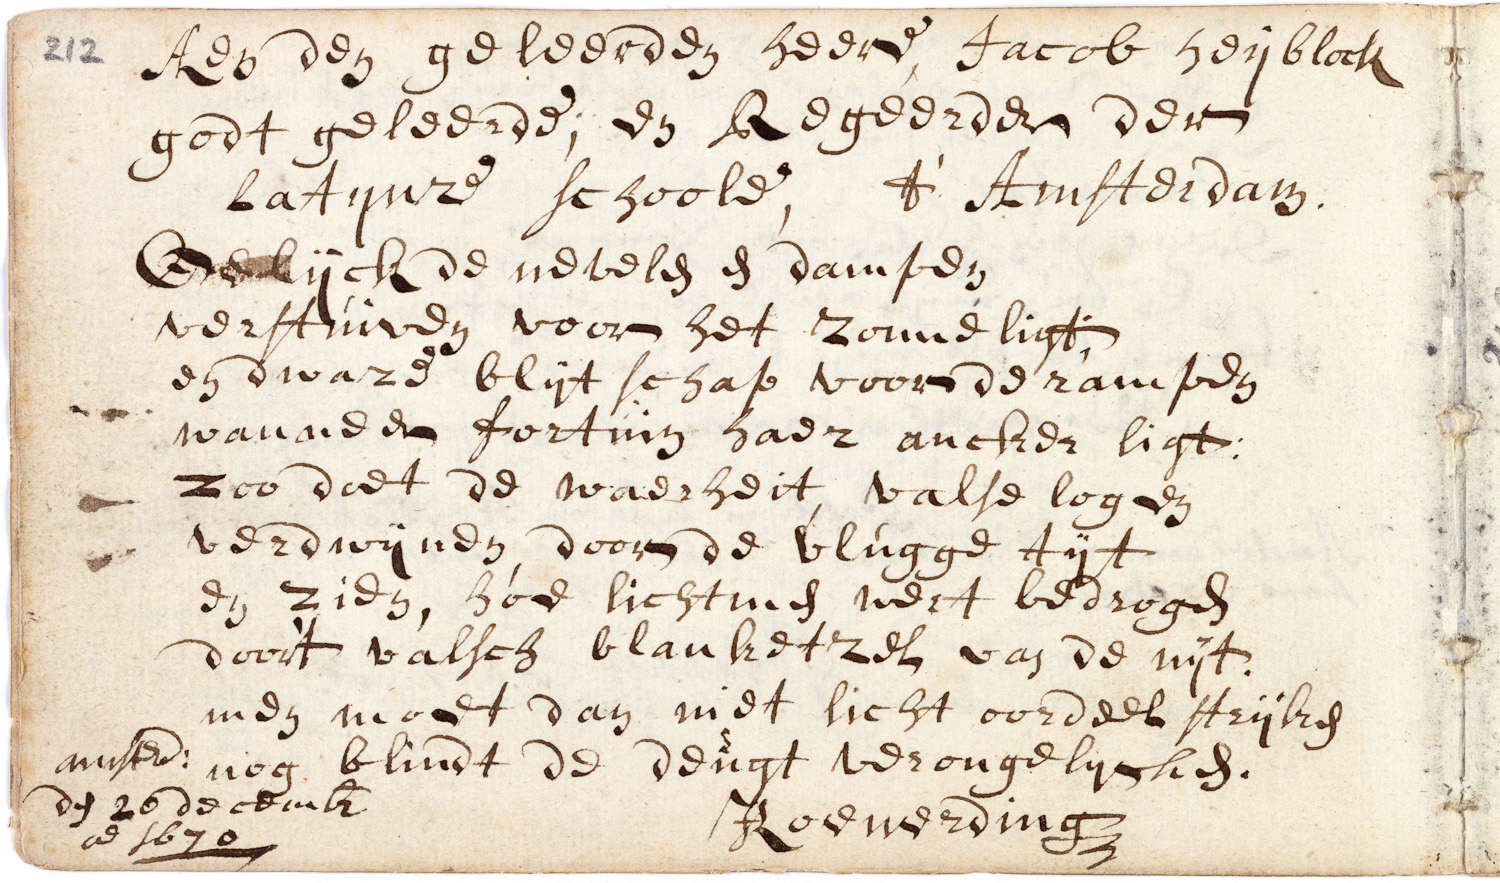 212
Aen den geleerden heere, Jacob heyblock
godt geleerde, en Regeerder der
Latynze schoole, t' Amsterdam.
Gelijck de nevelen en dampen
verstuiven voor het zonneligt,
en dwaze blijtschap voor de rampen
wanneer fortuin haer ancker ligt:
zoo doet de waerheit, valse logen
verdwijnen, door de vlugge tijt
en zien, hoe licht men wert bedrogen
door't valsch blanketzel van de nijt.
men moet dan niet licht oordeel strijken
nog blindt de deugt verongelycken.
amsterd:
den 20 decemb
ao 1670
Koenerding